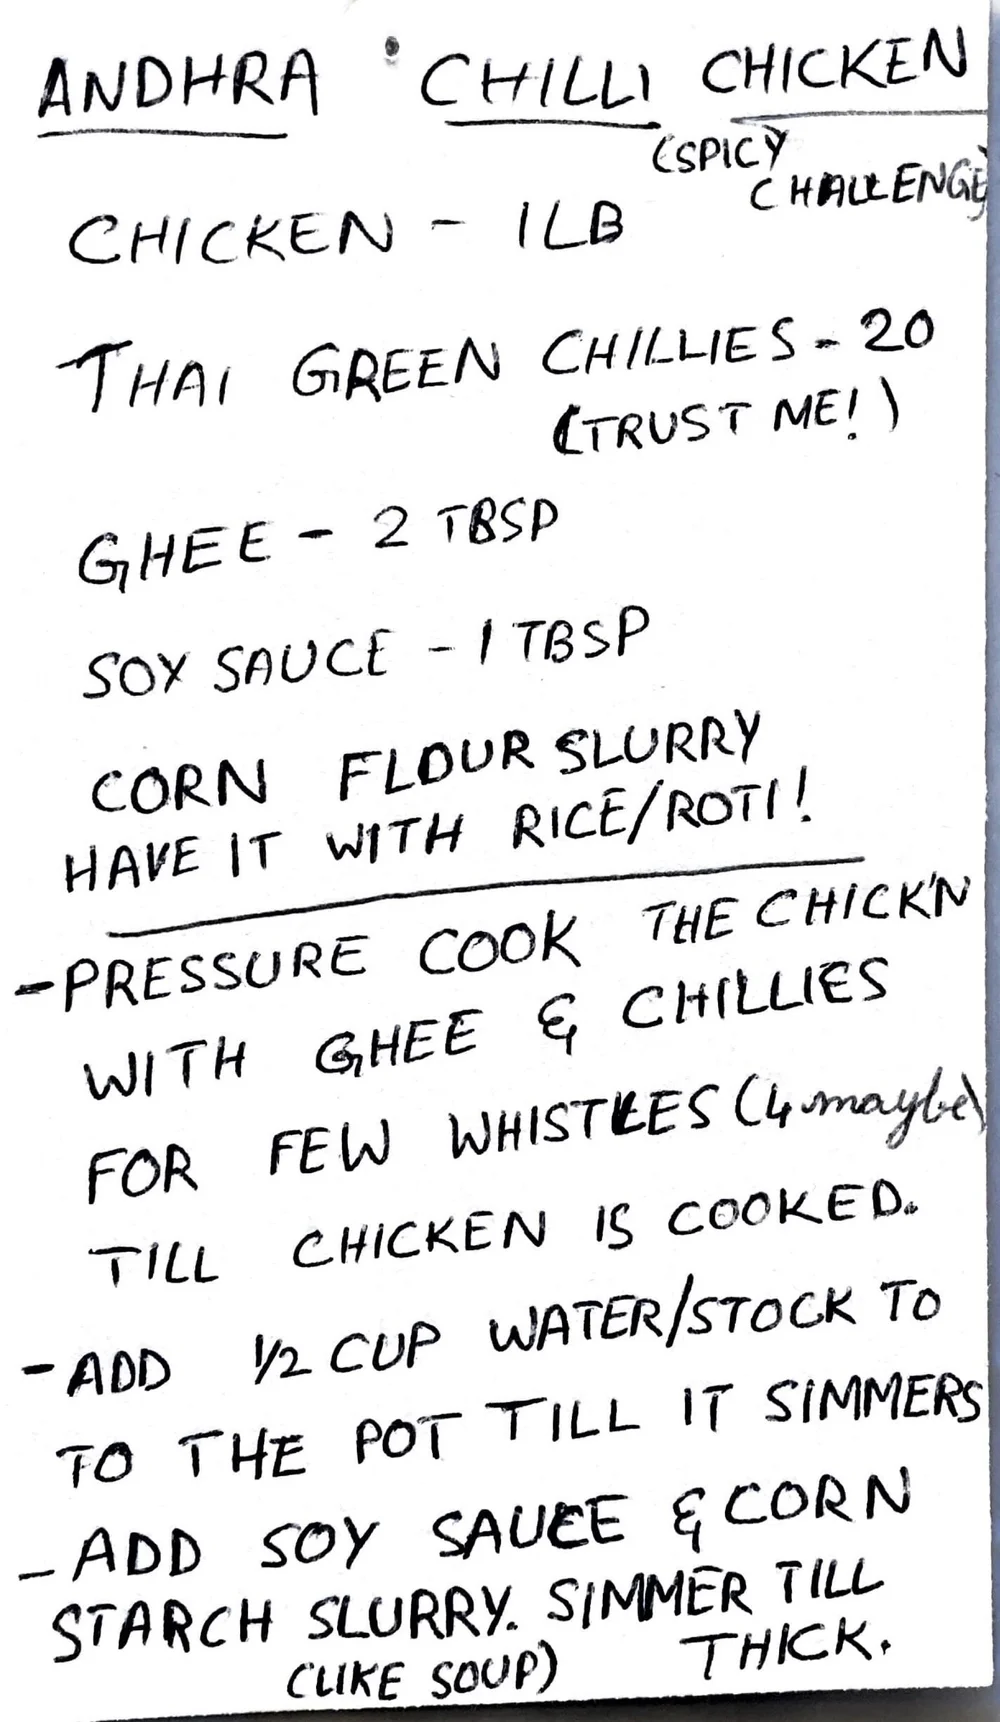 ANDHRA CHILLI CHICKEN
(SPICY
CHALLENGE)
CHICKEN - 1LB
THAI GREEN CHILLIES - 20
(TRUST ME!)
GHEE - 2 TBSP
SOY SAUCE - 1 TBSP
CORN FLOUR SLURRY
HAVE IT WITH RICE/ROTI!
- PRESSURE COOK THE CHICK'N
WITH GHEE & CHILLIES
FOR FEW WHISTLES (4 maybe)
TILL CHICKEN IS COOKED.
- ADD 1/2 CUP WATER/STOCK TO
TO THE POT TILL IT SIMMERS
- ADD SOY SAUCE & CORN
STARCH SLURRY. SIMMER TILL
(LIKE SOUP) THICK.